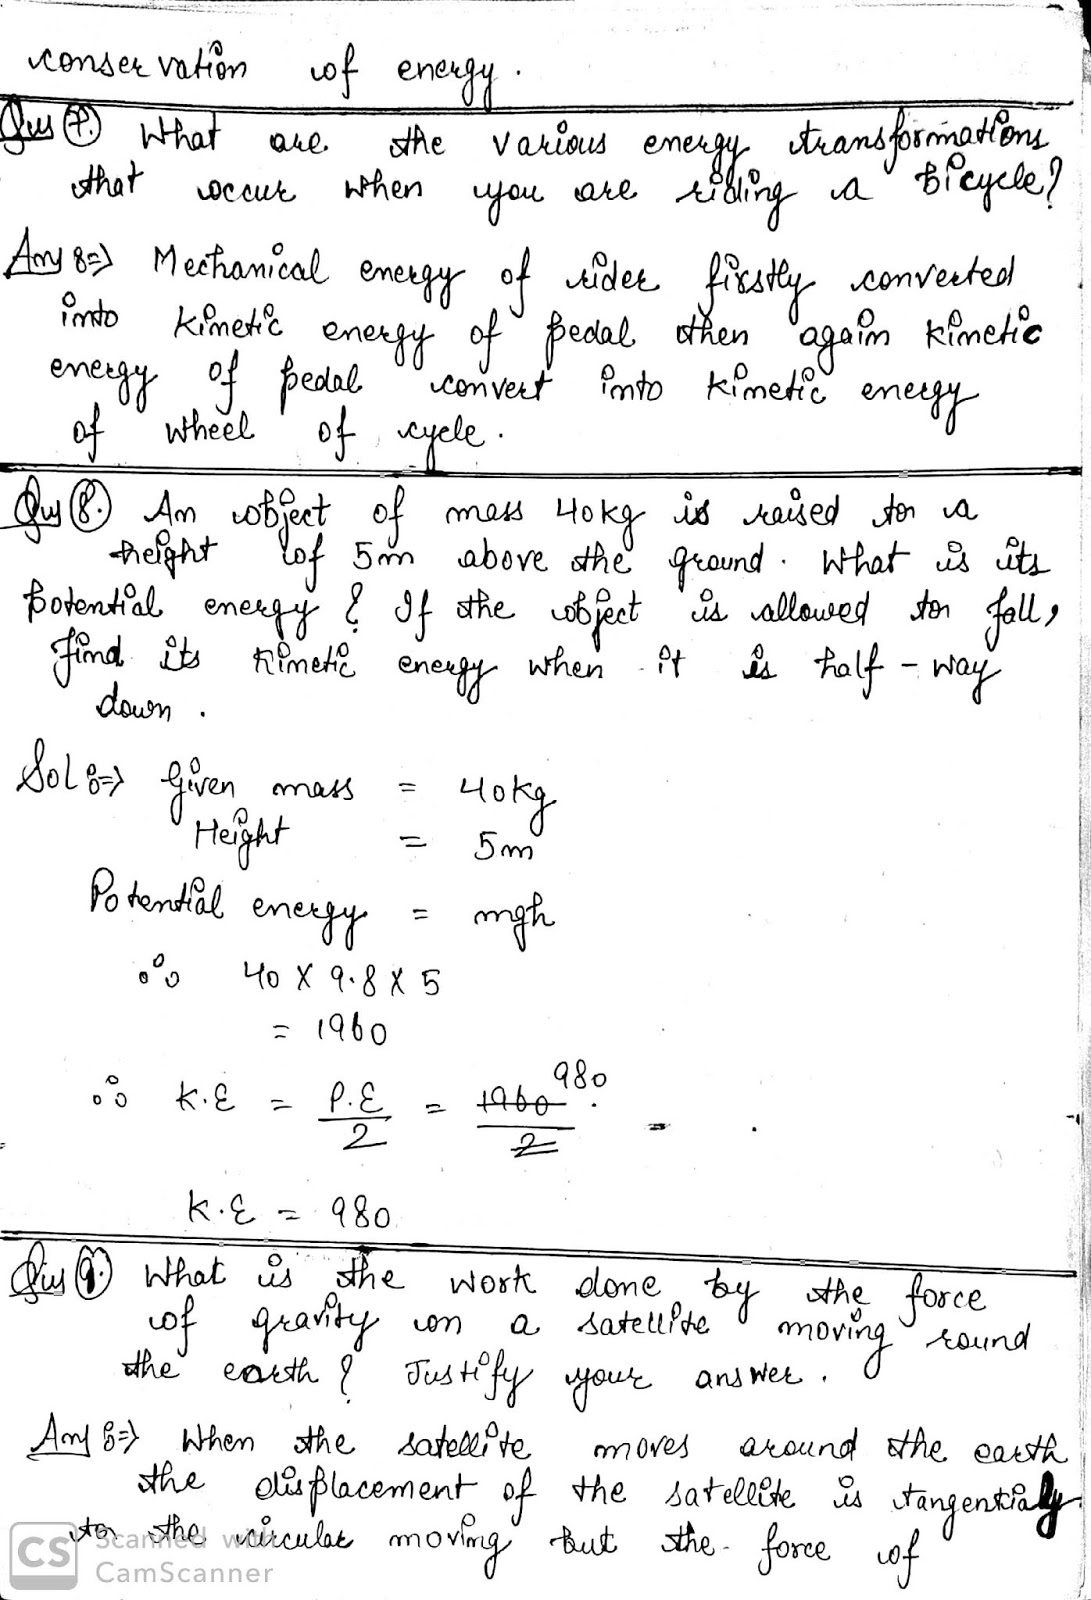 conservation of energy.
Qus 7. What are the various energy transformations
that occur when you are riding a bicycle?
Ans :=> Mechanical energy of rider firstly converted
into kinetic energy of pedal then again kinetic
energy of pedal convert into kinetic energy
of wheel of cycle.
Qus 8. An object of mass 40kg is raised to a
height of 5m above the ground. What is its
potential energy? If the object is allowed to fall,
find its kinetic energy when it is half-way
down.
Sol :=> Given mass = 40kg
Height = 5m
Potential energy = mgh
∴ 40 X 9.8 X 5
= 1960
∴ K.E = P.E/2 = 1960/2 980
K.E = 980
Qus 9. What is the work done by the force
of gravity on a satellite moving round
the earth? Justify your answer.
Ans :=> When the satellite moves around the earth
the displacement of the satellite is tangentialy
to the circular moving but the force of
CS Scanned with
CamScanner